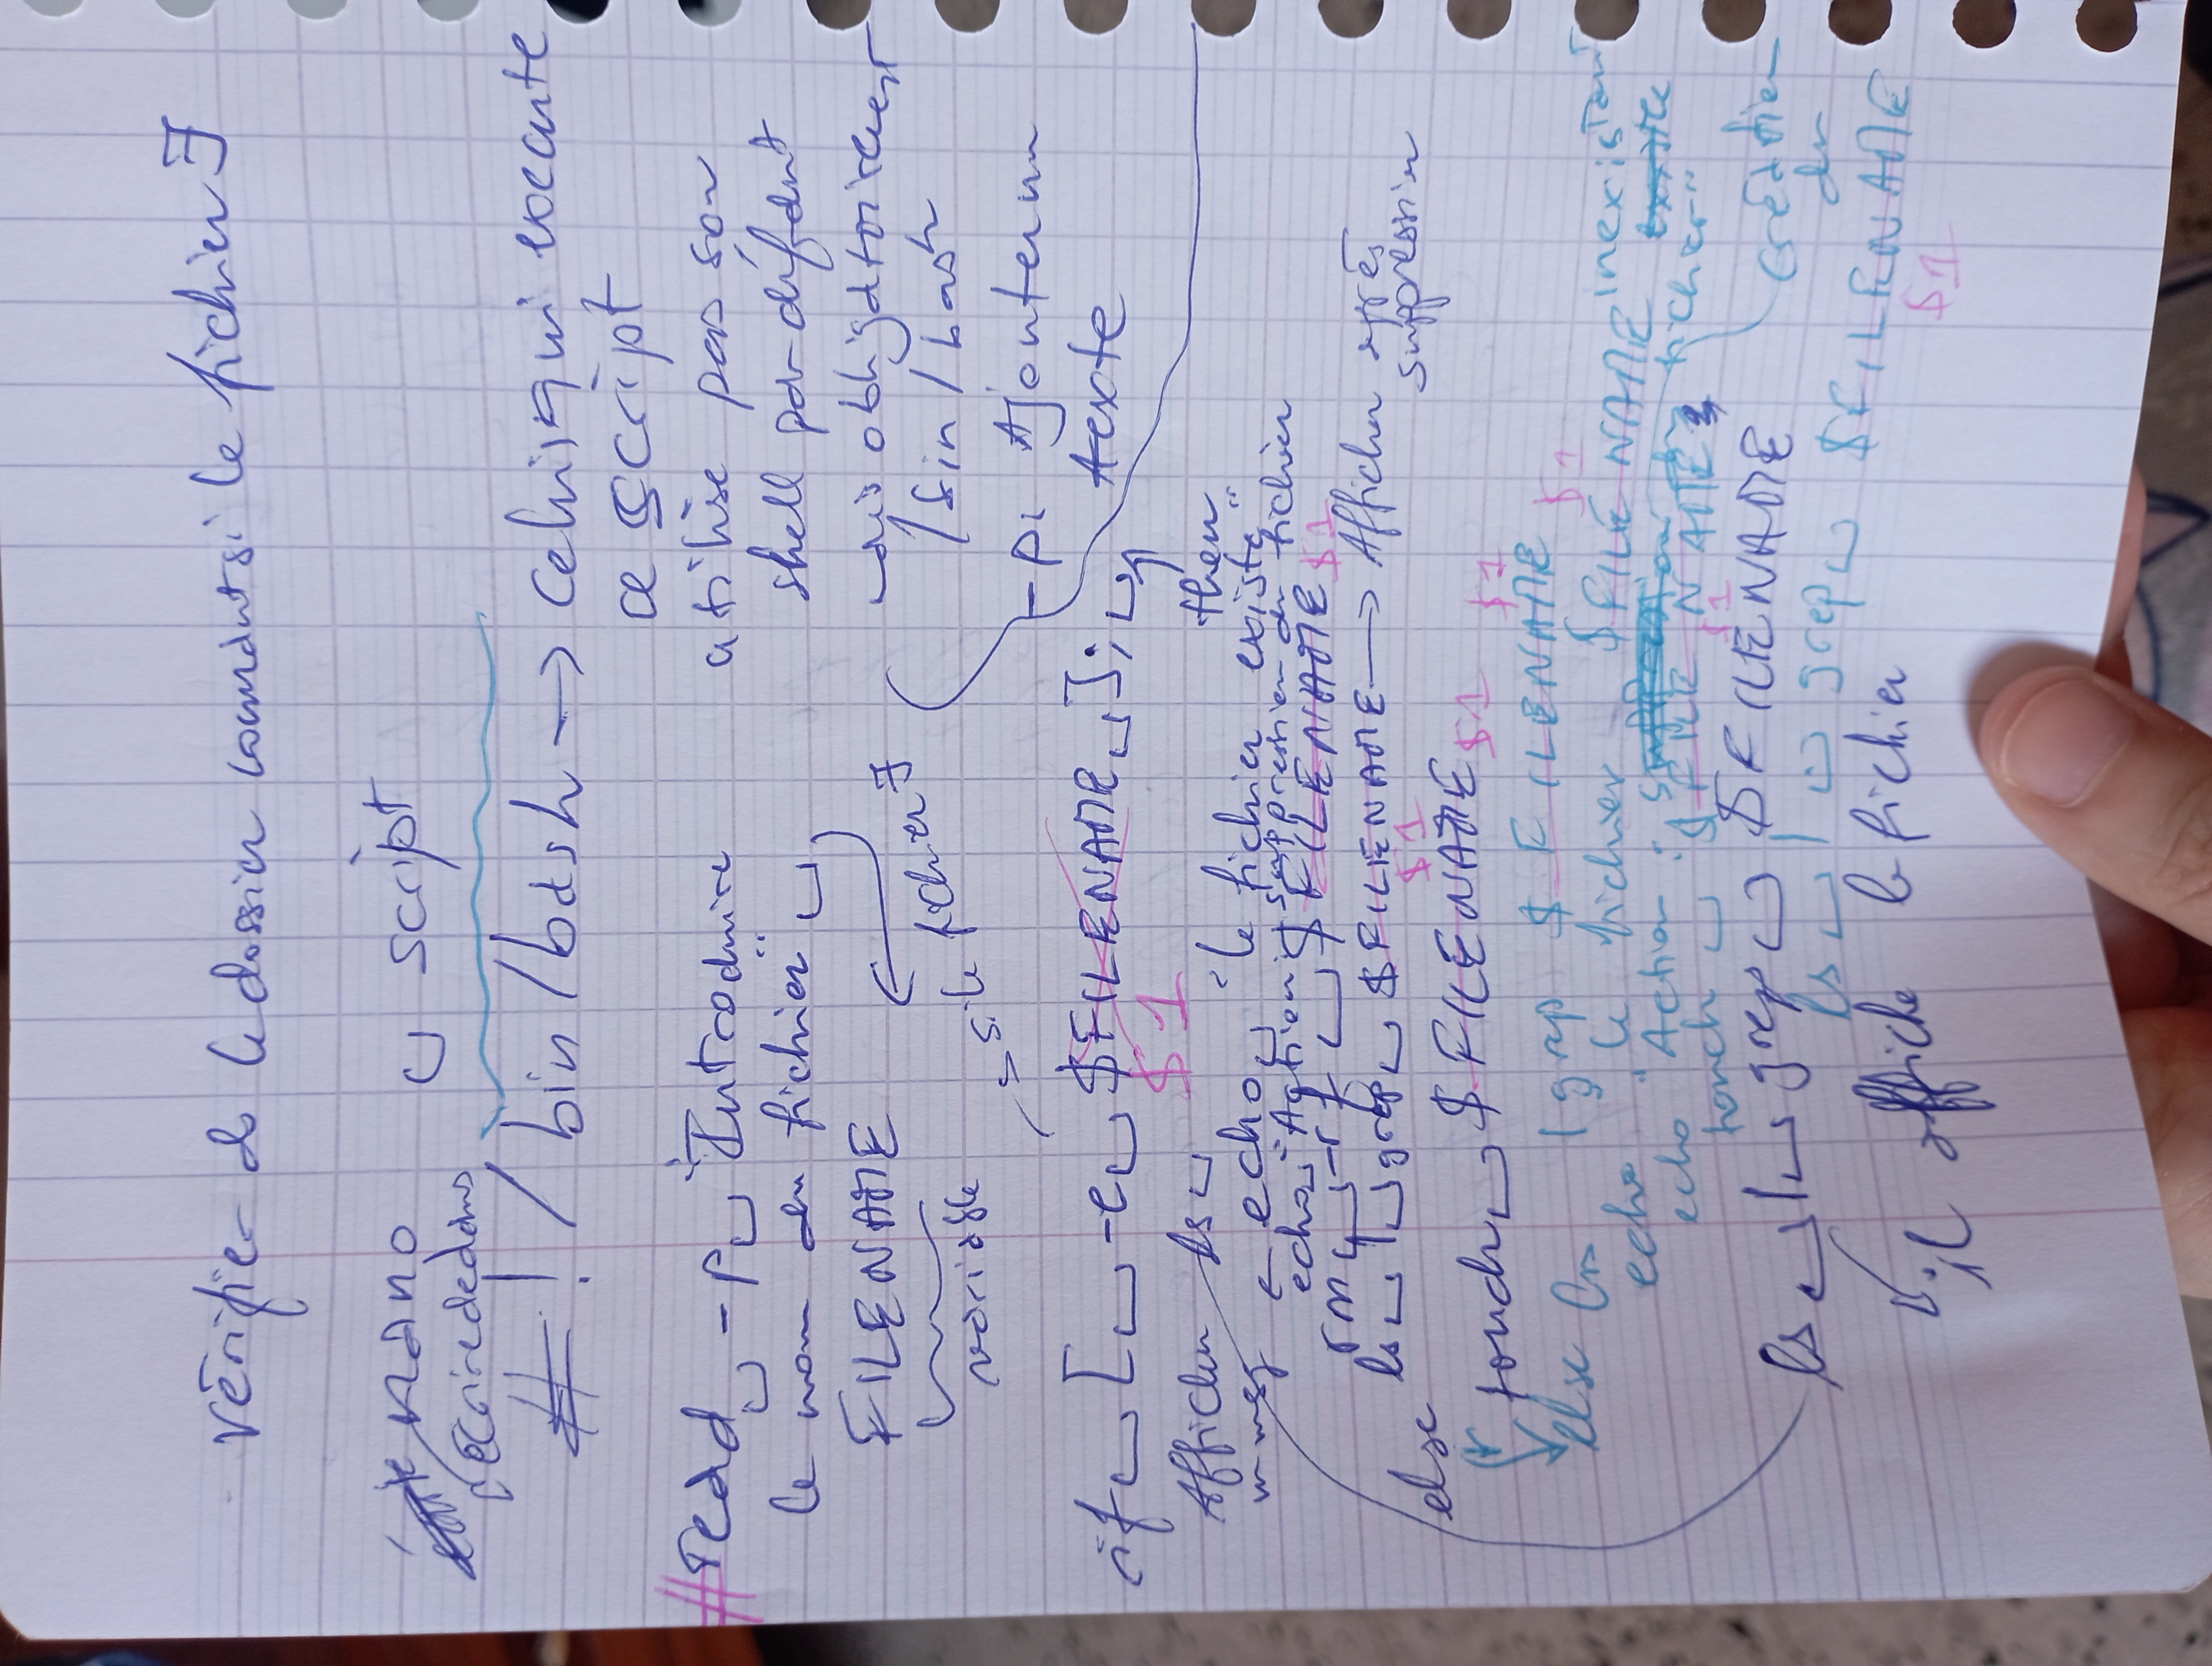 Vérifier ds le dossier courant si le fichier ∃
nano ␣ script
écrire dedans
#!/bin/bash → celui qui execute
ce script
#read ␣ -p ␣ "Introduire
le nom du fichier" ␣
FILENAME
variable
utilise pas son
shell par défaut
mais obligatoirement
/bin/bash
-p: Ajouter un
texte
→ si le fichier ∃
if ␣ [ ␣ -e ␣ $FILENAME ␣ ]; ␣
$1
then
Afficher
un msg
ls ␣
← echo ␣ "le fichier existe"
echo ␣ "Action : suppression du fichier
rm ␣ -rf ␣ $FILENAME $1
ls ␣ | ␣ grep ␣ $FILENAME → Afficher après
suppression
$1
else
touch ␣ $FILENAME $1
$1
else ls | grep $FILENAME
$1
echo "le fichier $FILENAME inexistant
echo "Action : fichier"
touch ␣ $FILENAME
$1
création
du
ls ␣ | ␣ grep ␣ $FILENAME
ls ␣ | ␣ grep ␣ $FILENAME
$1
il affiche le fichier